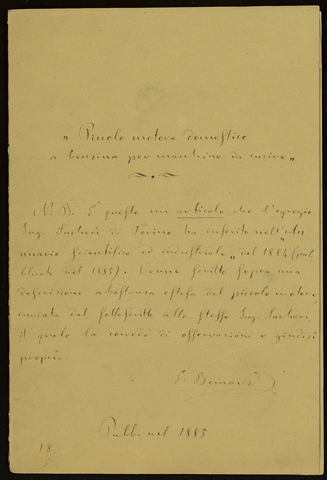 „ Piccolo motore domestico
a benzina per macchine da cucire „
N. B. È questo un articolo che l'egregio
Ing. Sacheri di Torino ha inserito nell'„An
nuario Scientifico ed industriale „ del 1884 (pub
blicato nel 1885). Venne scritto sopra una
descrizione abbastanza estesa del piccolo motore,
inviata dal sottoscritto allo stesso Ing. Sacheri,
il quale la corredò di osservazioni e giudizi
propri.
E. Bernardi
Pubb. nel 1885
18